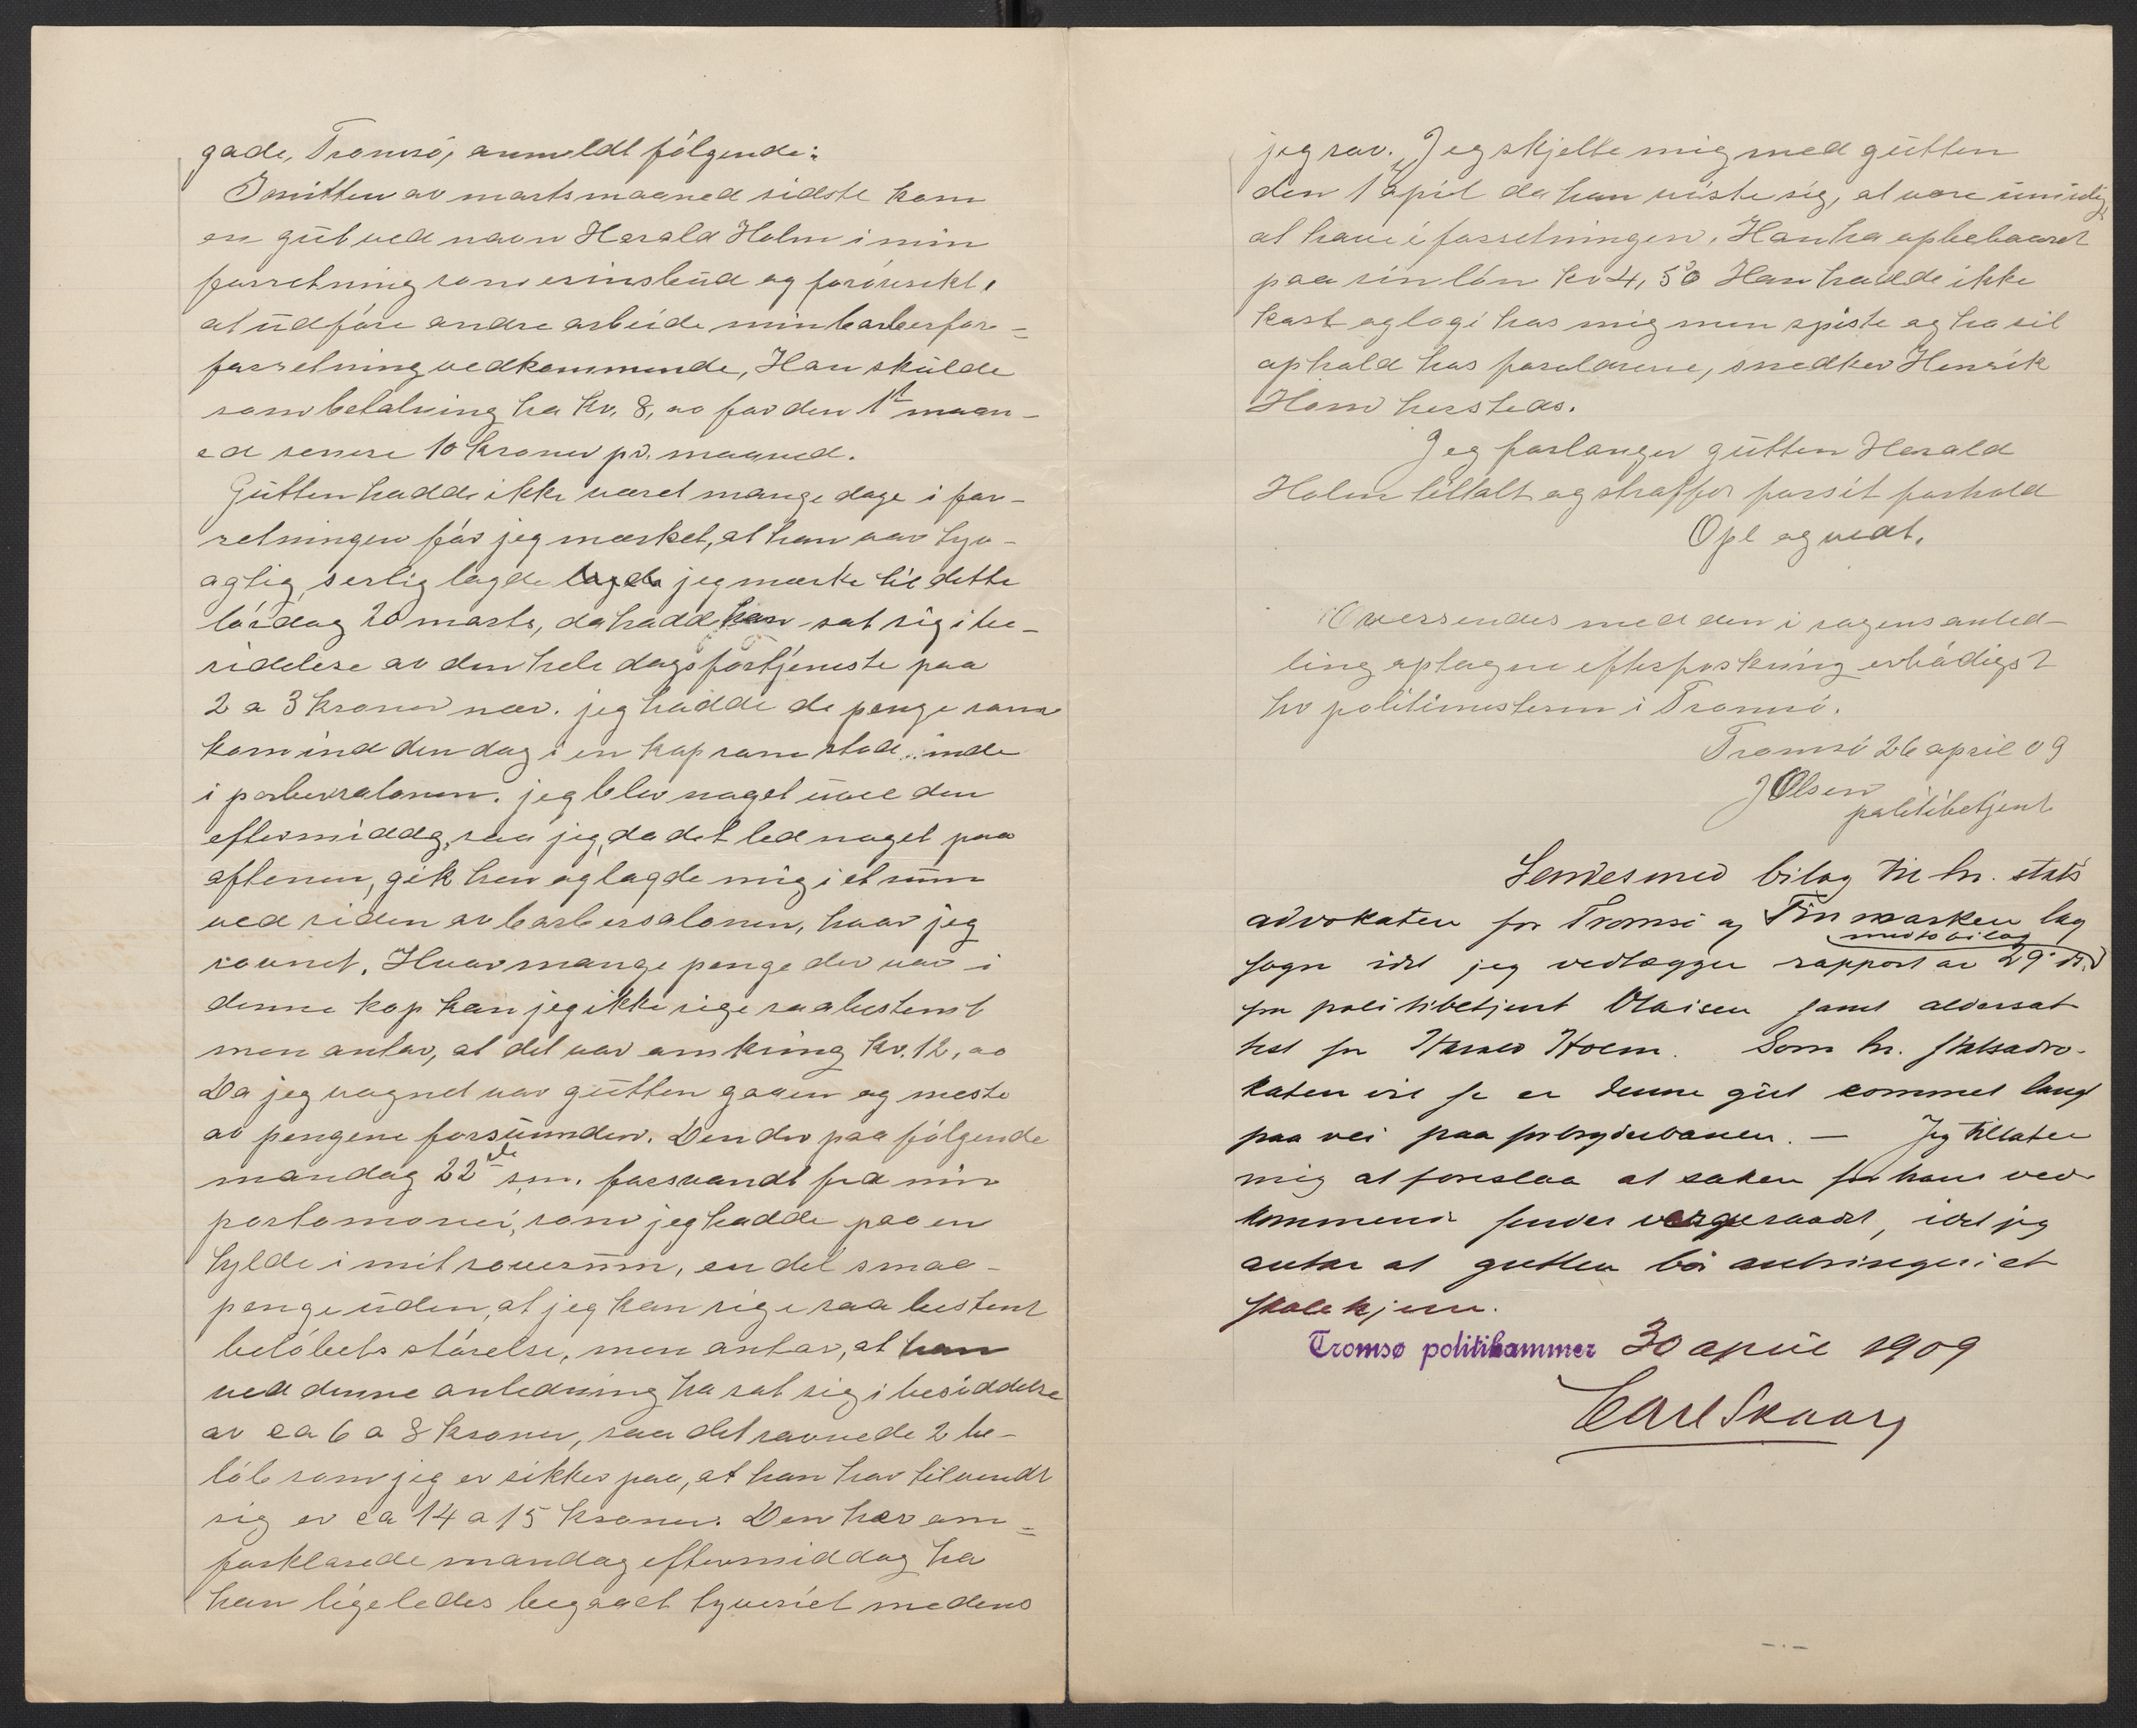 gade, Tromsø, anmeldt følgende:
I mitten av martsmaaned sidste kom
en gut ved navn Harald Holm i min
forretning som erinsbud og forøvrikt,
at udføre andre arbeide min barberfor=
forretning vedkommende, Han skulde
som betalning ha kr. 8,00 for den 1st maan-
ed senere 10 kroner pr. maaned.
Gutten hadde ikke været mange dage i for-
retningen før jeg mærket, at han var tyv-
agtig, serlig lagde lagde jeg mærke til dette
lørdag 20 marts, da hadde han sat sig i be-
sidelse av den hele dags fortjeneste paa
2 a 3 kroner nær. jeg hadde de penge som
kom ind den dag i en kop som stod inde
i barbersalonen. jeg blev noget uvel den
eftermiddg, saa jeg, da det led noget paa
aftenen, gik hen og lagde mig i et rum
ved siden av barbersalonen, hvor jeg
sovnet. Hvor mange penge der var i
denne kop kan jeg ikke sige saa bestemt
men antar, at det var omkring kr. 12,00
Da jeg vagnet var gutten gaaen og meste
av pengene forsvunden. Den der paa følgende
mandag 22de s.m. forsvandt fra min
portomonei, som jeg hadde paa en
hylde i mit soverum, en del smaa-
penge uden, at jeg kan sige saa bestemt
beløbets størelse, men antar, at han
ved denne anledning ha sat sig i besiddelse
av ca 6 a 8 kroner, saa det savnede 2 be-
løb som jeg er sikker paa, at han har tilvendt
sig er ca 14 a 15 kroner. Den her om=
forklarede mandag eftermiddag ha
han ligeledes begaaet tyveriet medens
jeg sov. Jeg skjelte mig med gutten
den 1 april da han viste sig, at være umulig
at have i forretningen. Han ha opbebaaret
paa sin løn kr 4,50 Han hadde ikke
kost og logi hos mig men spiste og ha sit
ophold hos foraldrene, snedker Henrik
Hom hersteds.
Jeg forlanger gutten Harald
Holm tiltalt og straffet for sit forhold
Opl og vedt.
Oversendes med den i sagens anled-
ling optagne efterforskning erbødigst
hr politimesteren i Tromsø.
Tromsø 26 april 09
J Olsen
politibetjent
Sendes med bilag til hr. stats
advokaten for Tromsø og Finmarken lag
med to bilag
sogn idet jeg vedlægger rapport av 29 ds.
fra politibetjent Olaisen samt aldersat
test for Harald Holm. Som hr. statsadvo-
katen vil se er denne gut kommet langt
paa vei paa forbryderbanen. — Jeg tillater
mig at foreslaa at saken for hans ved-
kommende sendes vergeraadet, idet jeg
antar at gutten bør anbringes i et
skolehjem.
Tromsø politikammer 30 april 1909
Carl Skaar